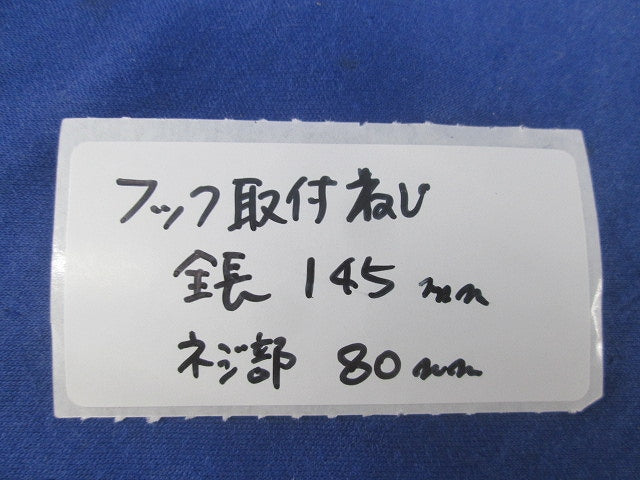 フック取付ねじ
全長 145 mm
ネジ部 80mm